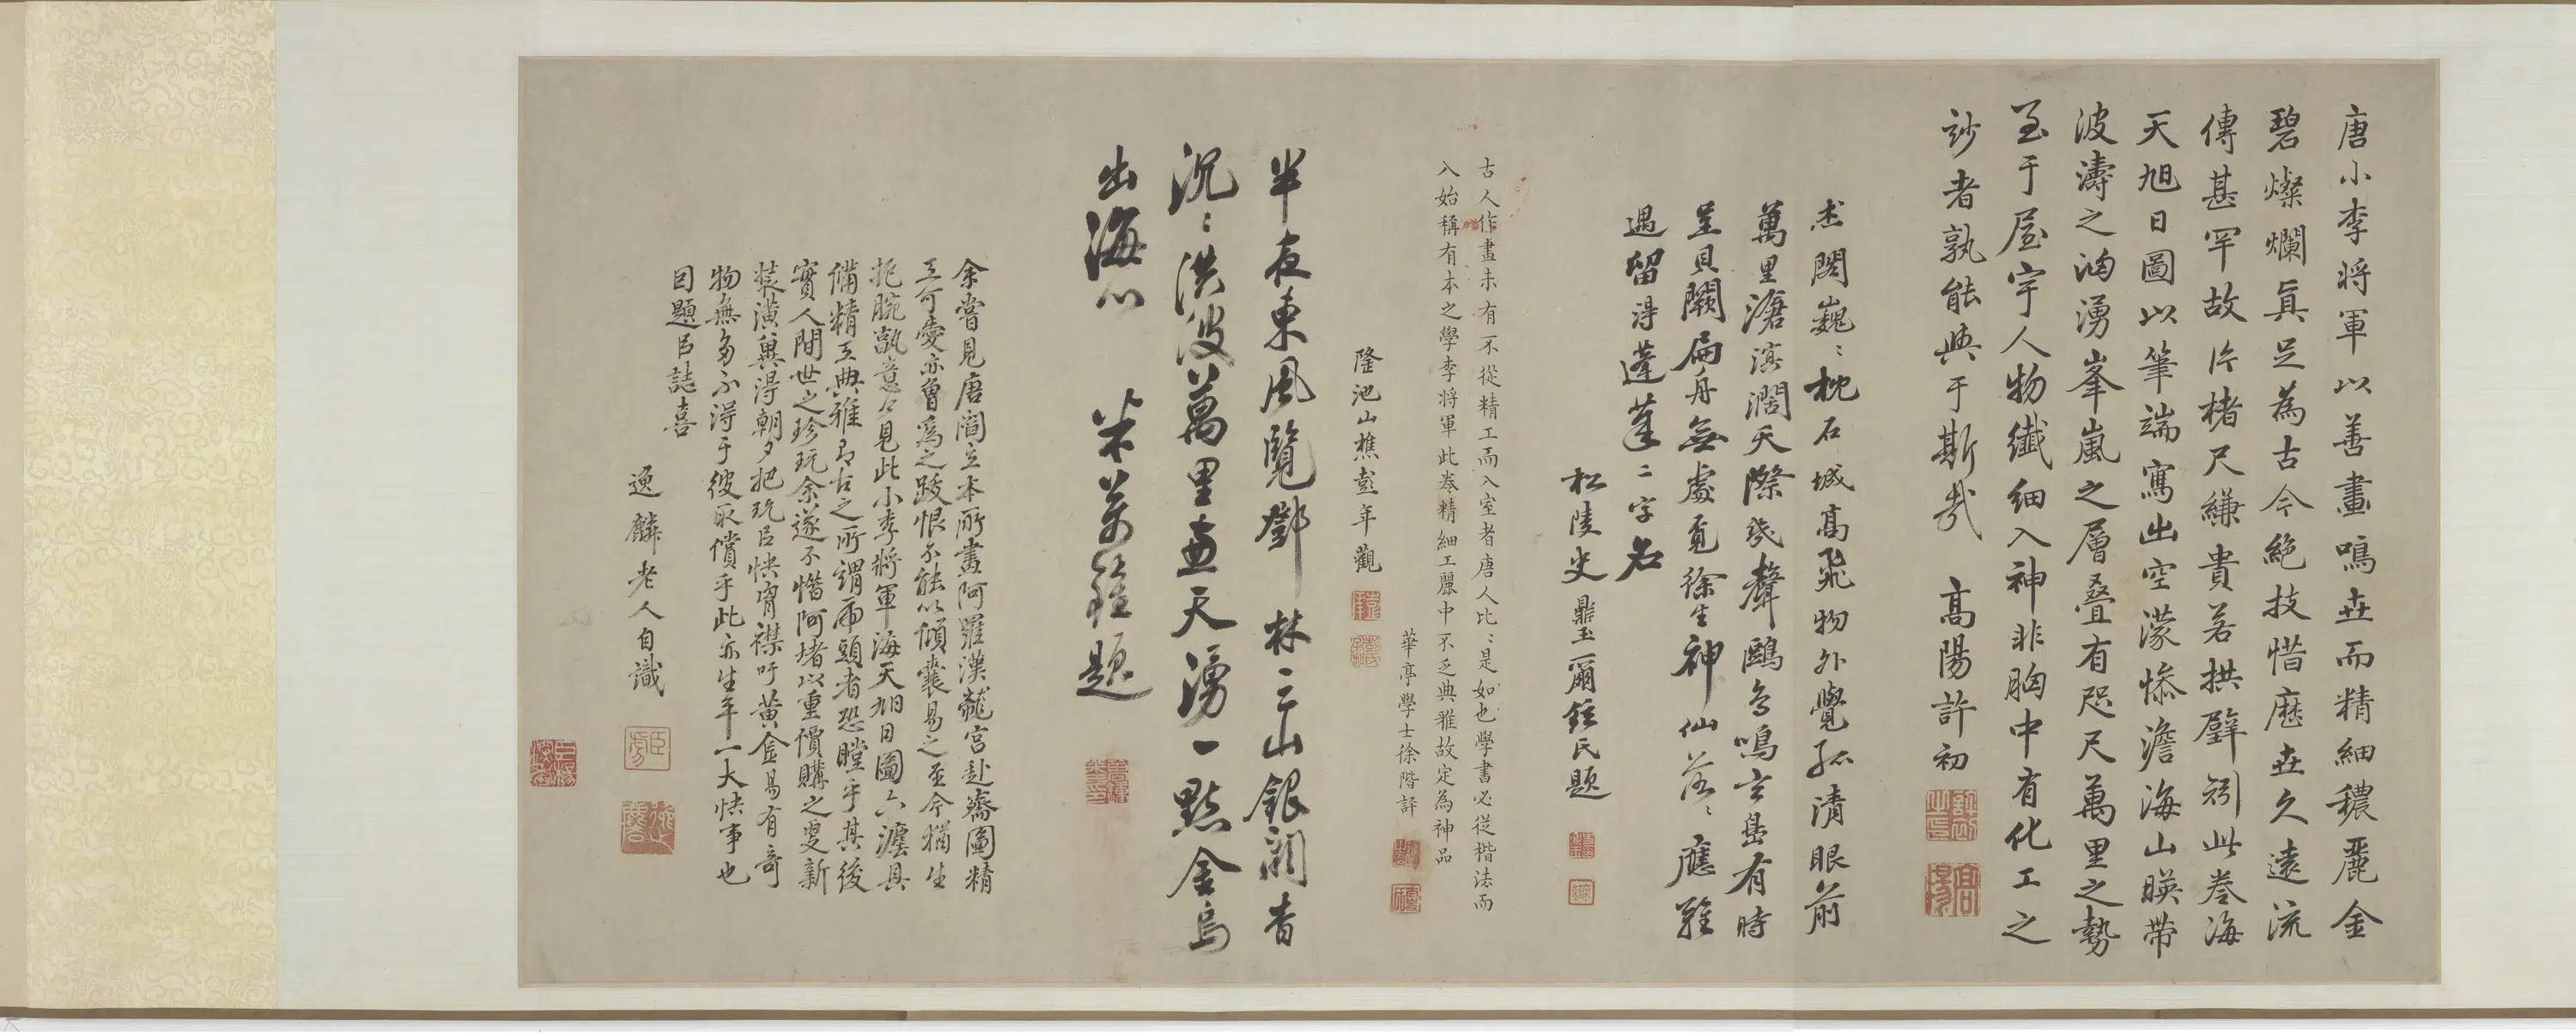 唐小李将軍以善畫鳴世而精細穠麗金
碧燦爛真足為古今絕技惜歷世久遠流
傳甚罕故片楮尺縑貴若拱璧矧此卷海
天旭日圖以筆端寫出空濛慘澹海山暎帶
波濤之洶湧峯嵐之層叠有咫尺萬里之勢
至于屋宇人物纖細入神非胸中有化工之
玅者孰能與于斯哉 高陽許初
杰閣巍〻枕石城高飛物外覺孤清眼前
萬里滄溟濶天際幾聲鷗鳥鳴雲島有時
呈貝闕扁舟無處覓徐生神仙落〻應難
遇留得蓬萊二字名
松陵史鼎玉爾鉉氏題
古人作畫未有不從精工而入室者唐人比〻是如也學書必從楷法而
入始稱有本之學李将軍此卷精細工麗中不乏典雅故定為神品
華亭學士徐階評
隆池山樵彭年觀
半夜東風覽鄧林三山銀闕杳
沉〻洪波萬里兼天湧一點金烏
出海心 朱萬鍾題
余嘗見唐閻立本所畫阿羅漢龍宮赴齋圖精
工可愛亦曾為之跋恨不能以傾囊易之至今猶生
扼腕甑意今見此小李將軍海天旭日圖六灋具
備精工典雅即古之所謂兩頭者恐瞠乎其後
實人間世之珍玩余遂不惜阿堵以重價購之更新
裝潢冀得朝夕把玩㠯快胷襟吁黃金易有奇
物無多不得于彼取償乎此亦生年一大快事也
因題㠯誌喜
逸麟老人自識